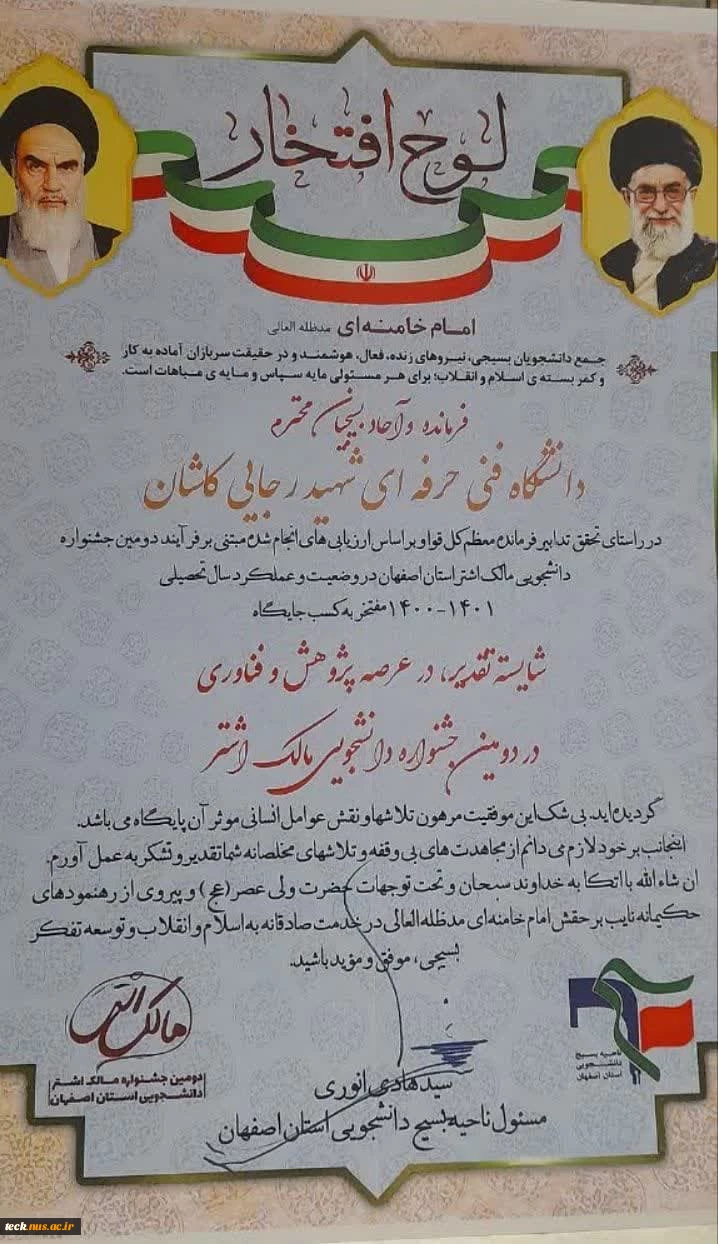 لوح افتخار
امام خامنه‌ای مدظله العالی
جمع دانشجویان بسیجی، نیروهای زنده، فعال، هوشمند و در حقیقت سربازان آماده به کار
و کمر بسته ی اسلام و انقلاب؛ برای هر مسئولی مایه سپاس و مایه ی مباهات است.
فرمانده و آحاد بسیجیان محترم
دانشگاه فنی حرفه ای شهید رجایی کاشان
در راستای تحقق تدابیر فرمانده معظم کل قوا و بر اساس ارزیابی های انجام شده مبتنی بر فرآیند دومین جشنواره
دانشجویی مالک اشتر استان اصفهان در وضعیت و عملکرد سال تحصیلی
۱۴۰۰-۱۴۰۱ مفتخر به کسب جایگاه
شایسته تقدیر، در عرصه پژوهش و فناوری
در دومین جشنواره دانشجویی مالک اشتر
گردیده اید. بی شک این موفقیت مرهون تلاشها و نقش عوامل انسانی موثر آن پایگاه می باشد.
اینجانب بر خود لازم می دانم از مجاهدت های بی وقفه و تلاشهای مخلصانه شما تقدیر و تشکر به عمل آورم.
ان شاء الله با اتکا به خداوند سبحان و تحت توجهات حضرت ولی عصر(عج) و پیروی از رهنمودهای
حکیمانه نایب بر حقش امام خامنه‌ای مدظله العالی در خدمت صادقانه به اسلام و انقلاب و توسعه تفکر
بسیجی، موفق و مؤید باشید.
سید هادی انوری
مسئول ناحیه بسیج دانشجویی استان اصفهان
ناحیه بسیج
دانشجویی
استان اصفهان
مالک اشتر
دومین جشنواره مالک اشتر
دانشجویی استان اصفهان
teck.nus.ac.ir